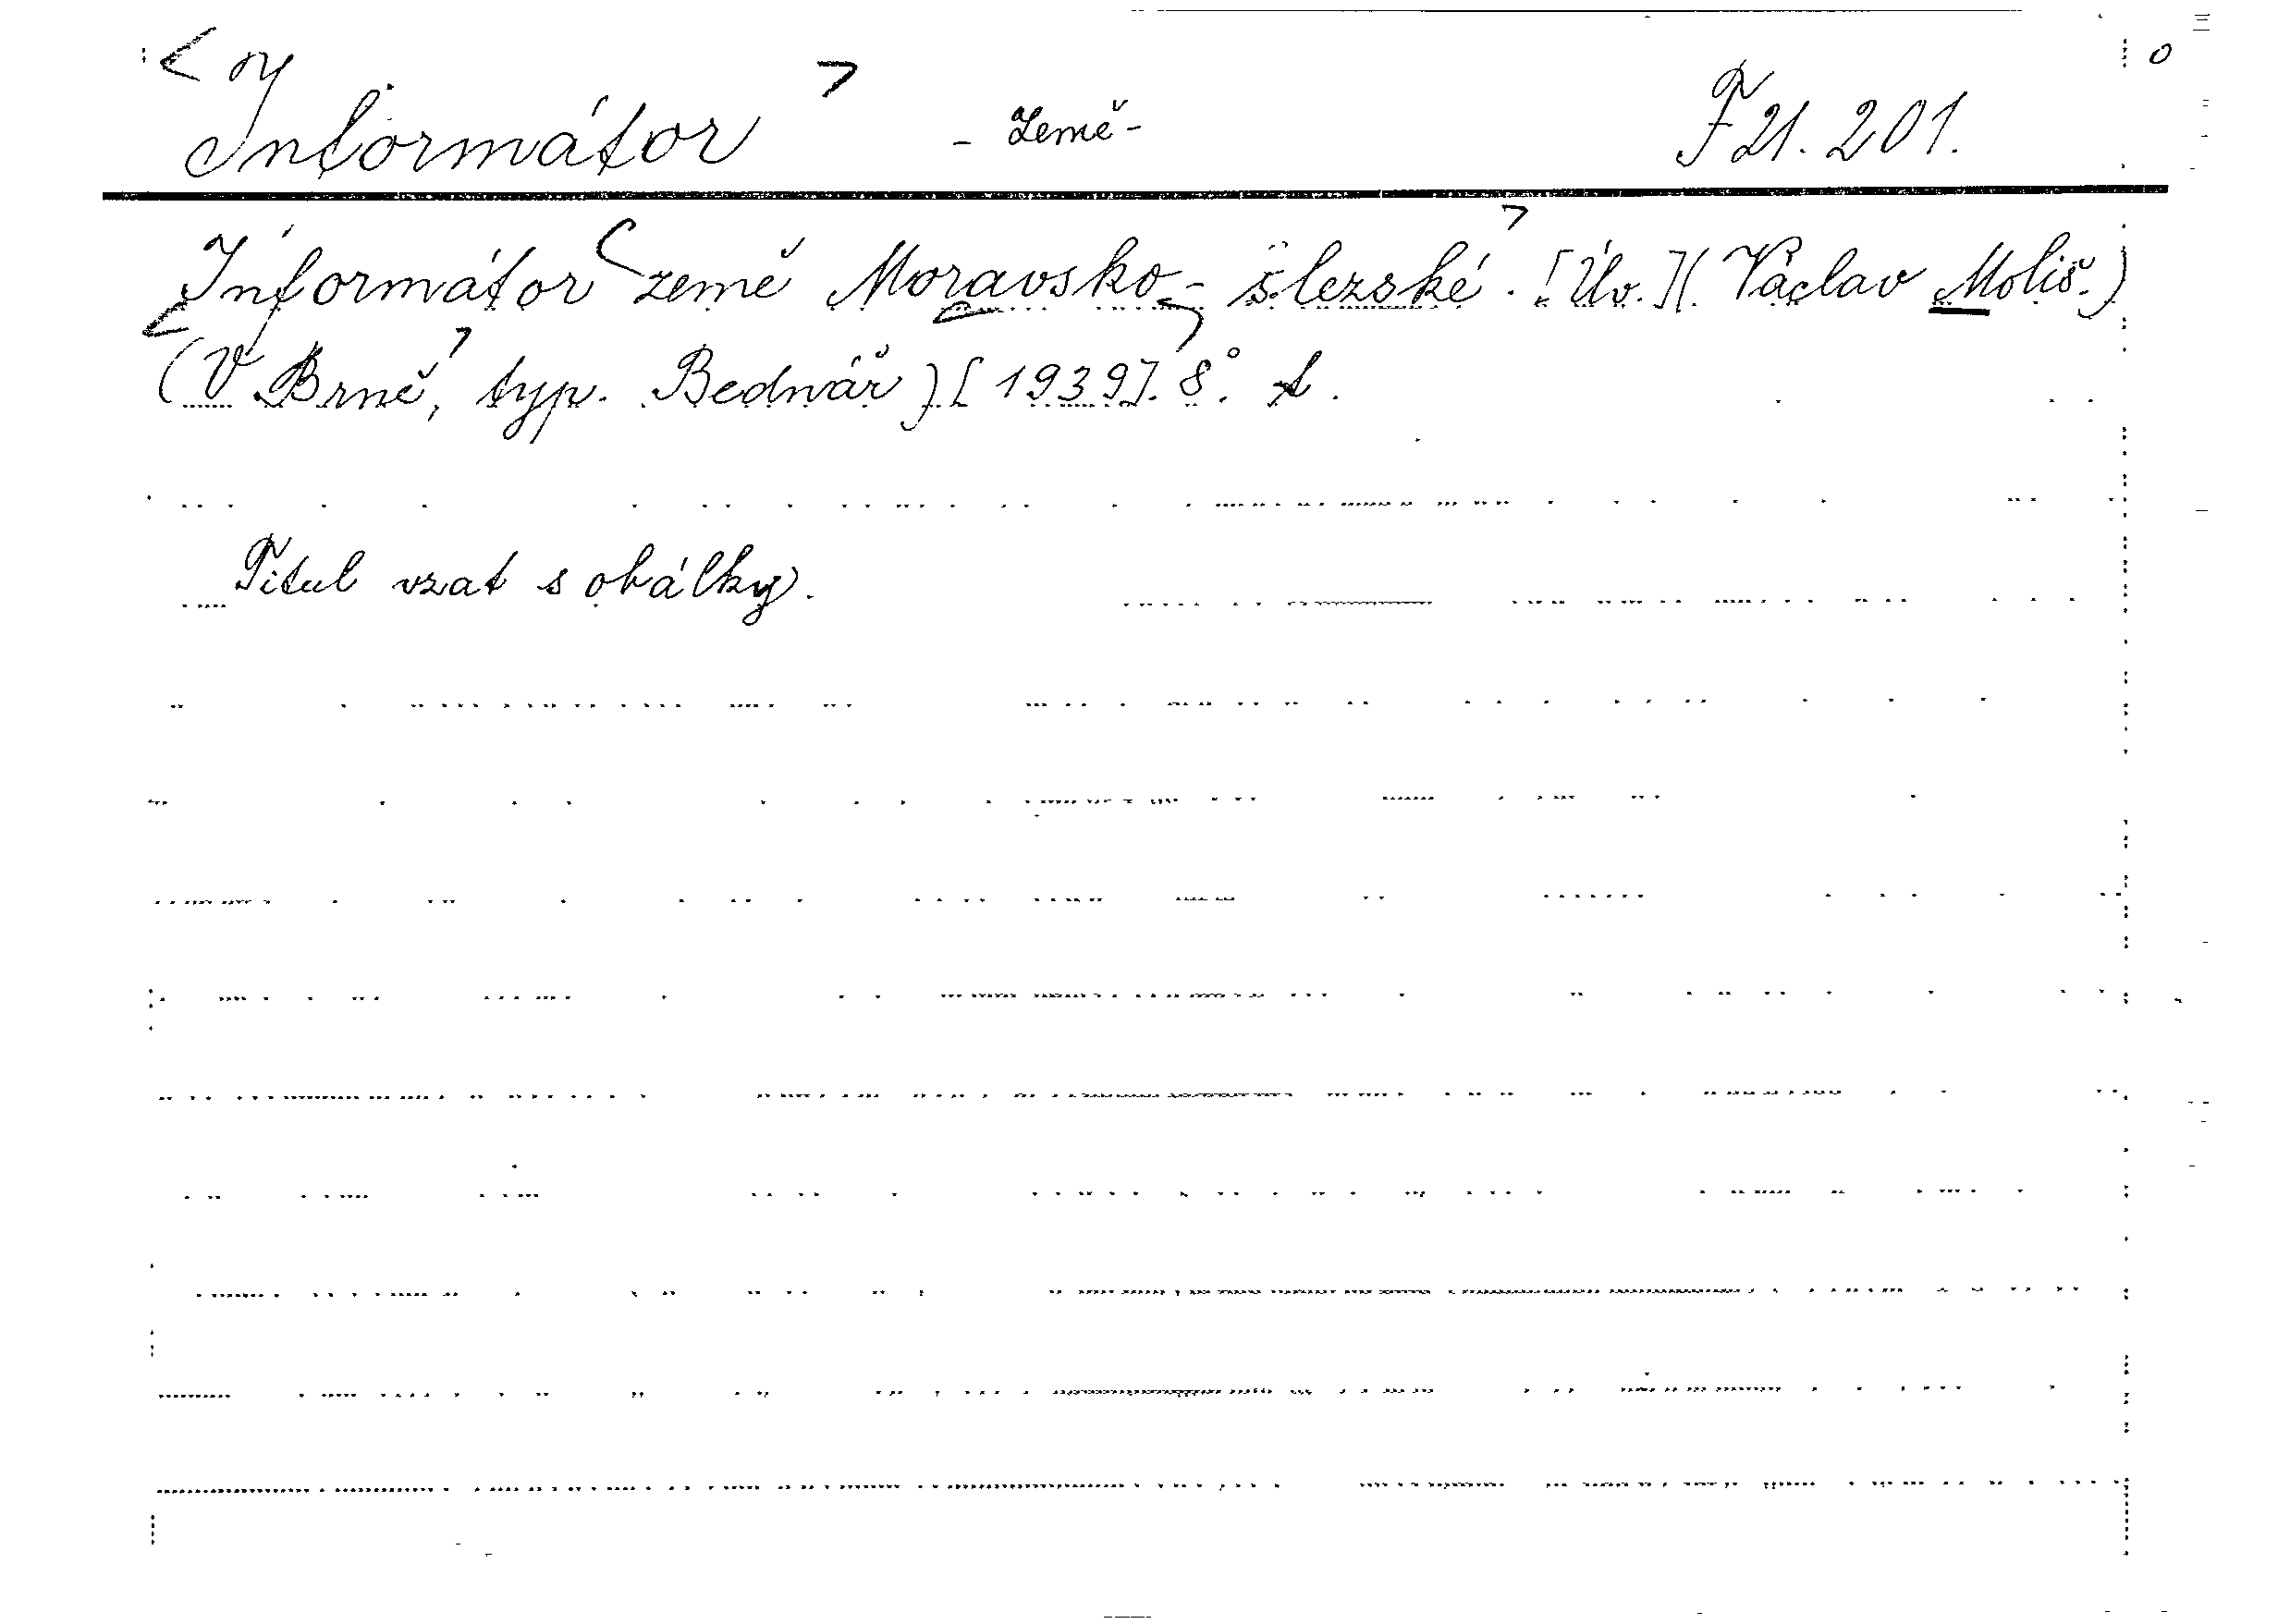 Informátor - Země - F 21.201.
Informátor země Moravsko-slezské. [Úv.](Václav Moliš.)
(V Brně, typ. Bednář) [1939]. 8°.
Titul vzat s obálky.